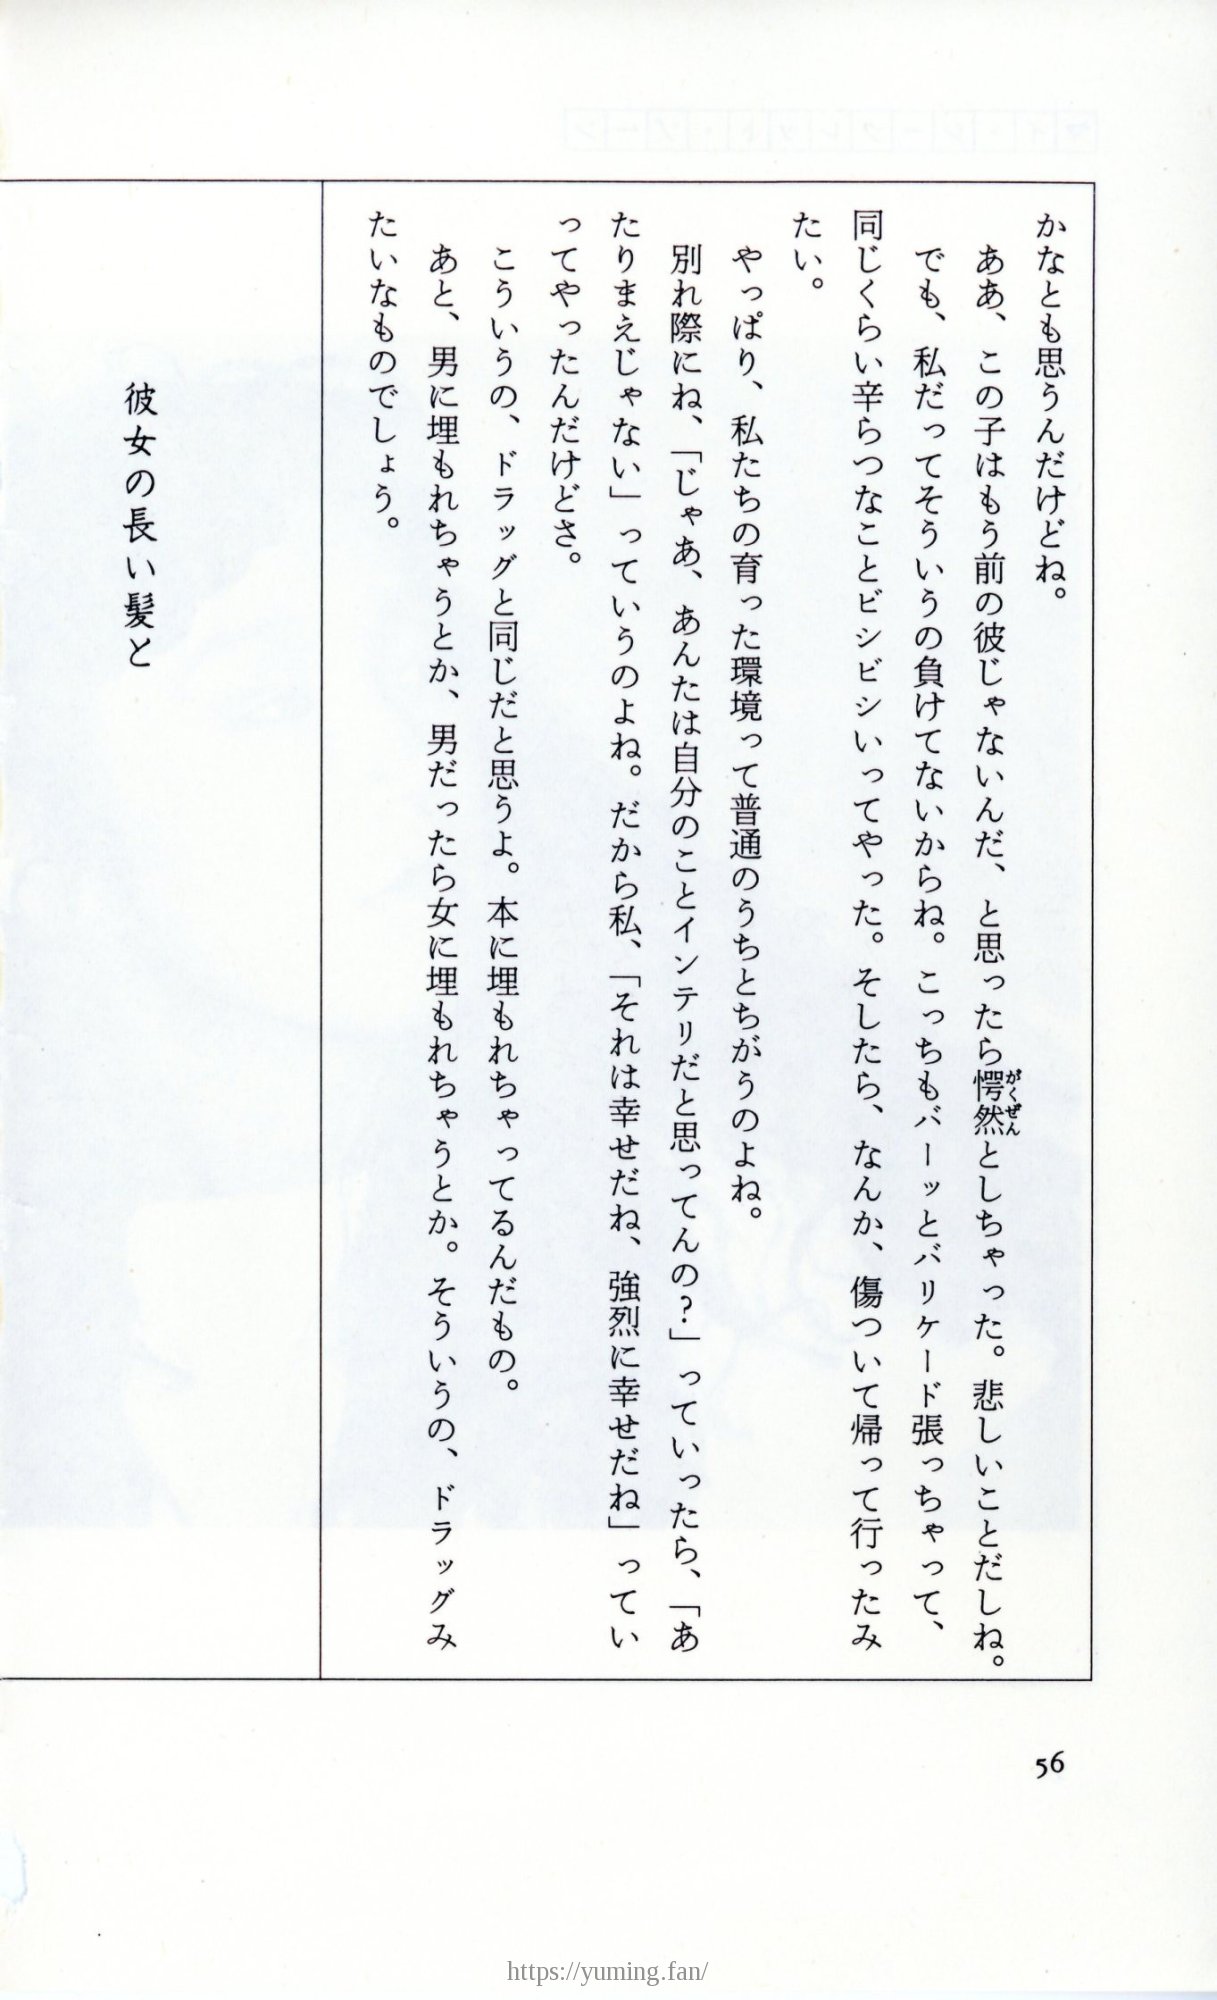 かなとも思うんだけどね。
ああ、この子はもう前の彼じゃないんだ、と思ったら愕然としちゃった。悲しいことだしね。
がくぜん
でも、私だってそういうの負けてないからね。こっちもバーッとバリケード張っちゃって、
同じくらい辛らつなことビシビシいってやった。そしたら、なんか、傷ついて帰って行ったみ
たい。
やっぱり、私たちの育った環境って普通のうちとちがうのよね。
別れ際にね、「じゃあ、あんたは自分のことインテリだと思ってんの?」っていったら、「あ
たりまえじゃない」っていうのよね。だから私、「それは幸せだね、強烈に幸せだね」ってい
ってやったんだけどさ。
こういうの、ドラッグと同じだと思うよ。本に埋もれちゃってるんだもの。
あと、男に埋もれちゃうとか、男だったら女に埋もれちゃうとか。そういうの、ドラッグみ
たいなものでしょう。
彼女の長い髪と
56
https://yuming.fan/